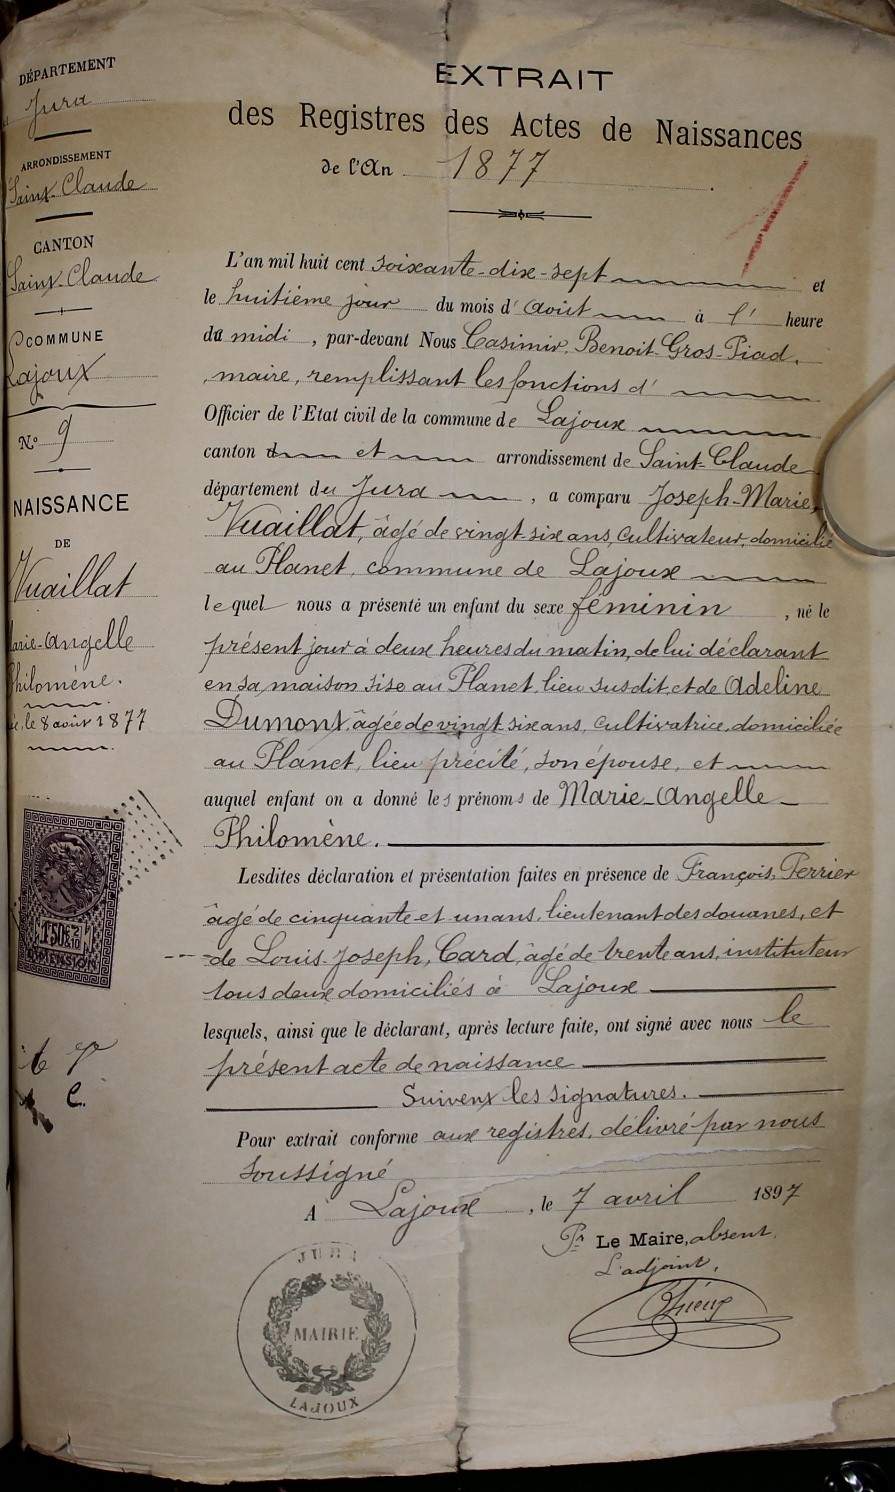 DÉPARTEMENT
Jura
ARRONDISSEMENT
Saint-Claude
CANTON
Saint-Claude
COMMUNE
Lajoux
N° 9
NAISSANCE
DE
Vuaillat
Marie-Angelle
Philomène.
Née le 8 août 1877
1F50C 2/10
DIMENSION
EXTRAIT
des Registres des Actes de Naissances
de l'An 1877
L'an mil huit cent soixante-dix-sept et
le huitième jour du mois d'août à l' heure
du midi, par-devant Nous Casimir, Benoit Gros-Piad,
maire, remplissant les fonctions d'
Officier de l'Etat civil de la commune de Lajoux
canton et arrondissement de Saint-Claude
département du Jura, a comparu Joseph-Marie,
Vuaillat, âgé de vingt-six ans, cultivateur, domicilié
au Planet, commune de Lajoux
lequel nous a présenté un enfant du sexe féminin, né le
présent jour à deux heures du matin, de lui déclarant
en sa maison sise au Planet, lieu susdit, et de Adeline
Dumont, âgée de vingt six ans, cultivatrice, domiciliée
au Planet, lieu précité, son épouse, et
auquel enfant on a donné les prénoms de Marie-Angelle-
Philomène.
Lesdites déclaration et présentation faites en présence de François, Perrier
âgé de cinquante-et un ans, lieutenant des douanes, et
de Louis-Joseph, Card, âgé de trente ans, instituteur
tous deux domiciliés à Lajoux
lesquels, ainsi que le déclarant, après lecture faite, ont signé avec nous le
présent acte de naissance
Suivent les signatures.
Pour extrait conforme aux registres, délivré par nous
soussigné
A Lajoux, le 7 avril 1897
Pr Le Maire, absent,
L'adjoint,
JURA
MAIRIE
LAJOUX